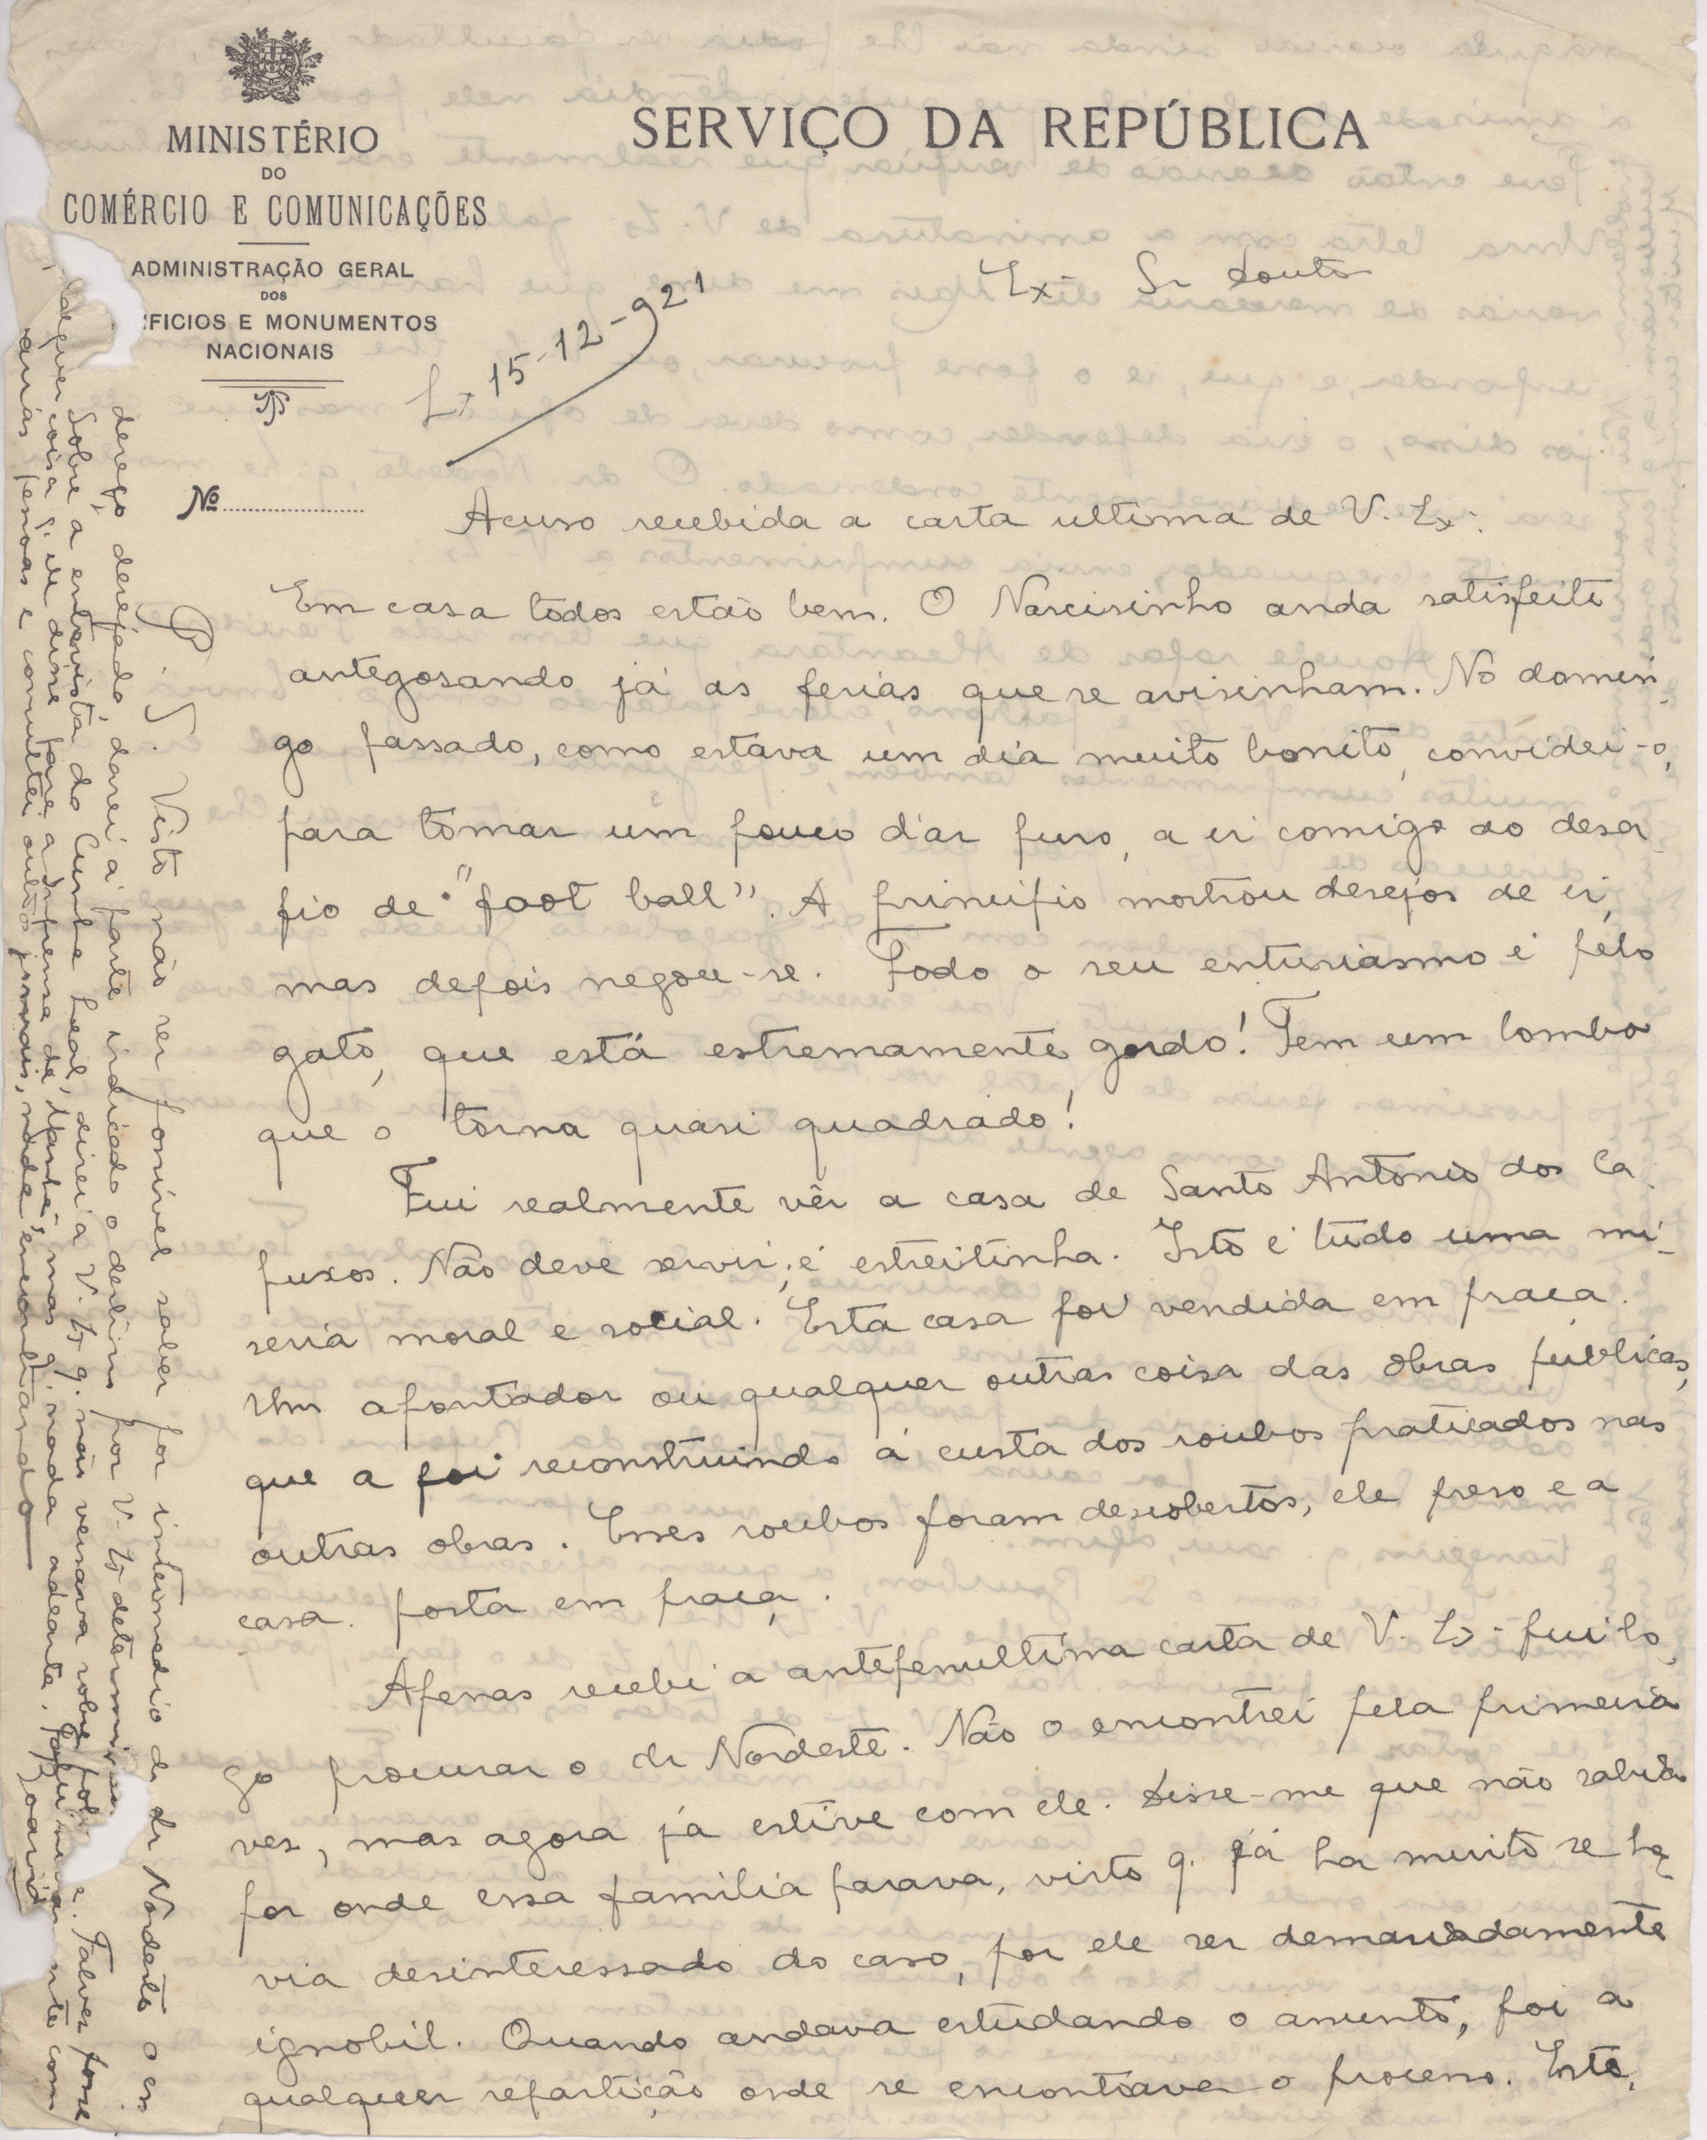 MINISTÉRIO
DO
COMÉRCIO E COMUNICAÇÕES
ADMINISTRAÇÃO GERAL
DOS
FICIOS E MONUMENTOS
NACIONAIS
SERVIÇO DA REPÚBLICA
Ex. Sr Souto
Lx 15-12-921
Nº
Acuso recebida a carta ultima de V. Ex.
Em casa todos estão bem. O Narcisinho anda satisfeito
antegosando já as ferias que se avisinham. No domin-
go passado, como estava um dia muito bonito, convidei-o,
para tomar um pouco d'ar puro, a ir comigo ao desa-
fio de "foot ball". A principio mostrou desejos de ir,
mas depois negou-se. Todo o seu entusiasmo é pelo
gato, que está estremamente gordo! Tem um lombo
que o torna quasi quadrado!
Fui realmente vêr a casa de Santo Antonio dos Ca-
puxos. Não deve servir; é estreitinha. Isto é tudo uma mi-
seria moral e social. Esta casa foi vendida em praça.
Um apontador ou qualquer outras coisa das obras públicas,
que a foi reconstruindo á custa dos roubos praticados nas
outras obras. Esses roubos foram descobertos, ele preso e a
casa posta em praça.
Apenas recebi a antepenultima carta de V. Ex. fui lo-
go procurar o dr Nordeste. Não o encontrei pela primeira
ves, mas agora já estive com ele. Disse-me que não sabia
por onde essa familia parava, visto q. já ha muito se ha-
via desinteressado do caso, por ele ser demasiadamente
ignobil. Quando andava estudando o assunto, foi a
qualquer repartição onde se encontrava o processo. Este,
P. S. Visto não ser possivel saber por intermedio do dr Nordeste o en-
dereço desejado, darei á parte indicado o destino por V. Ex determin
Sobre a entrevista do Cunha Leal, direi a V. Ex q. não versava sobre e. Talvez fosse
coisa q. ele disse para a imprensa da tarde, mas q. nada adeante.
pessoas e consultei outros jornais, nada encontrando